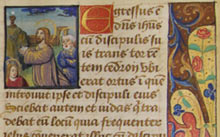 Egressus ē
dn̄s ih̄us
cū discipulis su
is trans torrē
tem cedron vbi
erat ortus i quē
introiuit ipse et discipuli eius
Sciebat autem et iudas q̄ tra
debat eū locū quia frequenter